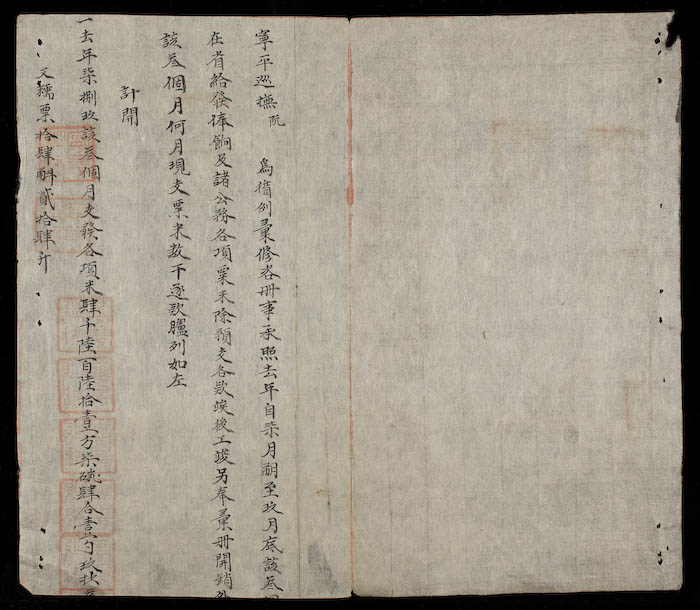 寧平巡撫阮 爲循例彙修咨册事承照去年自柒月朔至玖月底該叁個
在省給發俸餉及諸公務各項粟米除預支各款竢後工竣另奉彙册開銷外
該叁個月何月現支粟米数干逐款臚列如左
計開
一去年柒捌玖該叁個月支發各項米肆千陸百陸拾壹方柒鉢肆合壹勺玖抄
又糯粟拾肆斛貳拾肆升